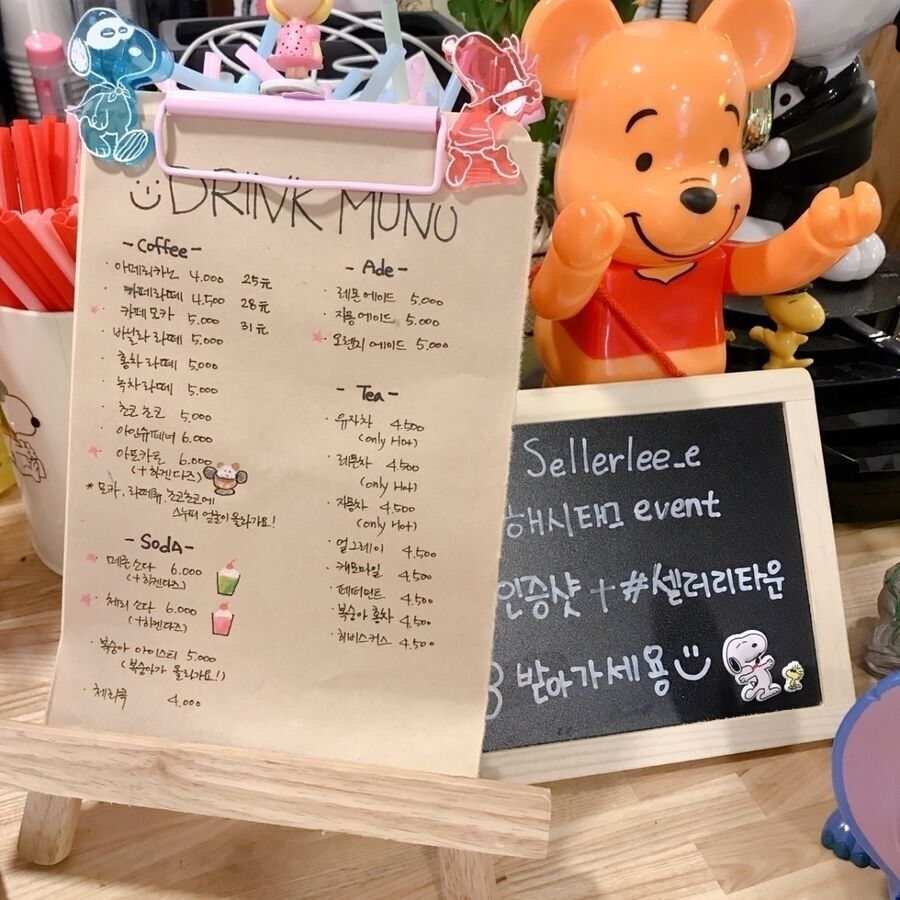 DRINK MUNU
- Coffee -
· 아메리카노 4.000 25元
· 카페라떼 4.500 28元
· 카페모카 5.000 31元
· 바닐라 라떼 5.000
· 홍차 라떼 5.000
· 녹차 라떼 5.000
· 초코초코 5.000
· 아인슈페너 6.000
· 아포가토 6.000
(+하겐다즈)
* 모카, 라떼류, 초코초코에
스누피 얼굴이 올라가요!
- SodA -
· 메론소다 6.000
(+하겐다즈)
· 체리 소다 6.000
(+하겐다즈)
· 복숭아 아이스티 5.000
(복숭아가 올라가요!)
· 체리콕 4.000
- Ade -
· 레몬에이드 5.000
· 자몽에이드 5.000
· 오렌지 에이드 5.000
- Tea -
· 유자차 4.500
(only Hot)
· 레몬차 4.500
(only Hot)
· 자몽차 4.500
(only Hot)
· 얼그레이 4.500
· 캐모마일 4.500
· 페퍼민트 4.500
· 복숭아 홍차 4.500
· 히비스커스 4.500
Sellerlee_e
해시태그 event
인증샷 + #셀러리타운
받아가세용